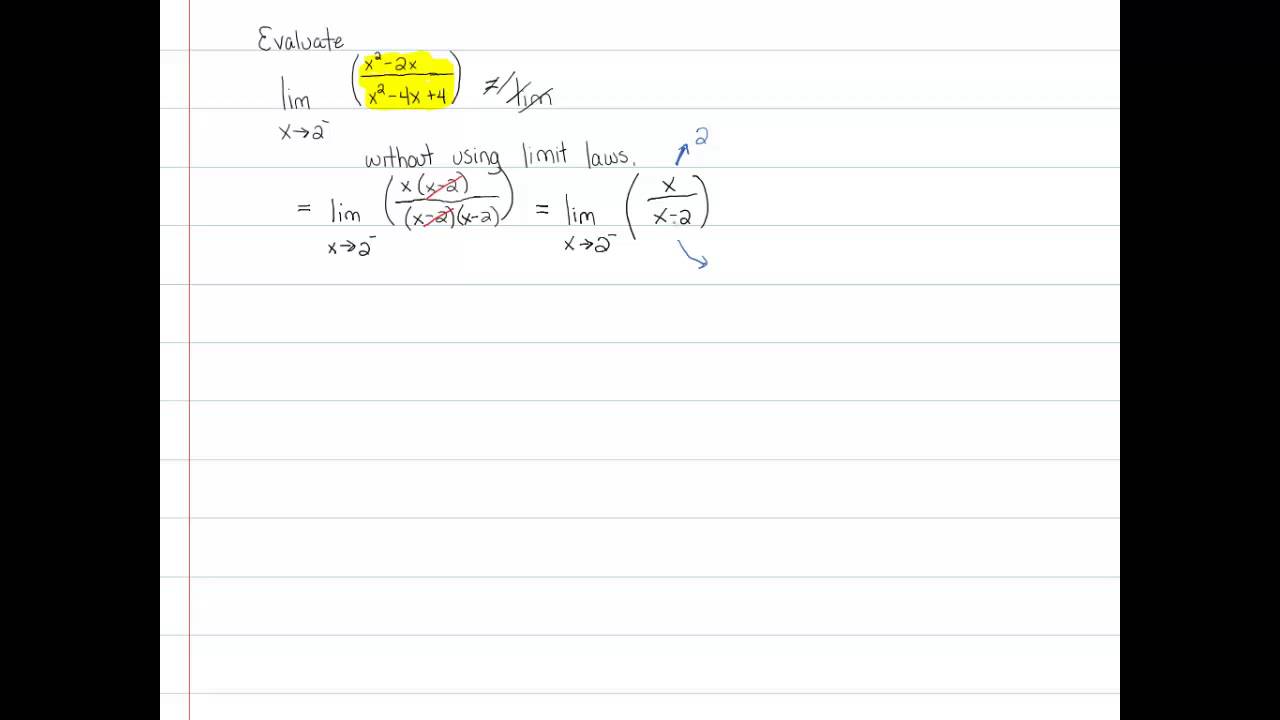 Evaluate
lim x→2⁻ ( (x² - 2x) / (x² - 4x + 4) ) ≠ / lim
without using limit laws.
= lim x→2⁻ ( x(x-2) / (x-2)(x-2) ) = lim x→2⁻ ( x / (x-2) ) ↗ 2 ↘